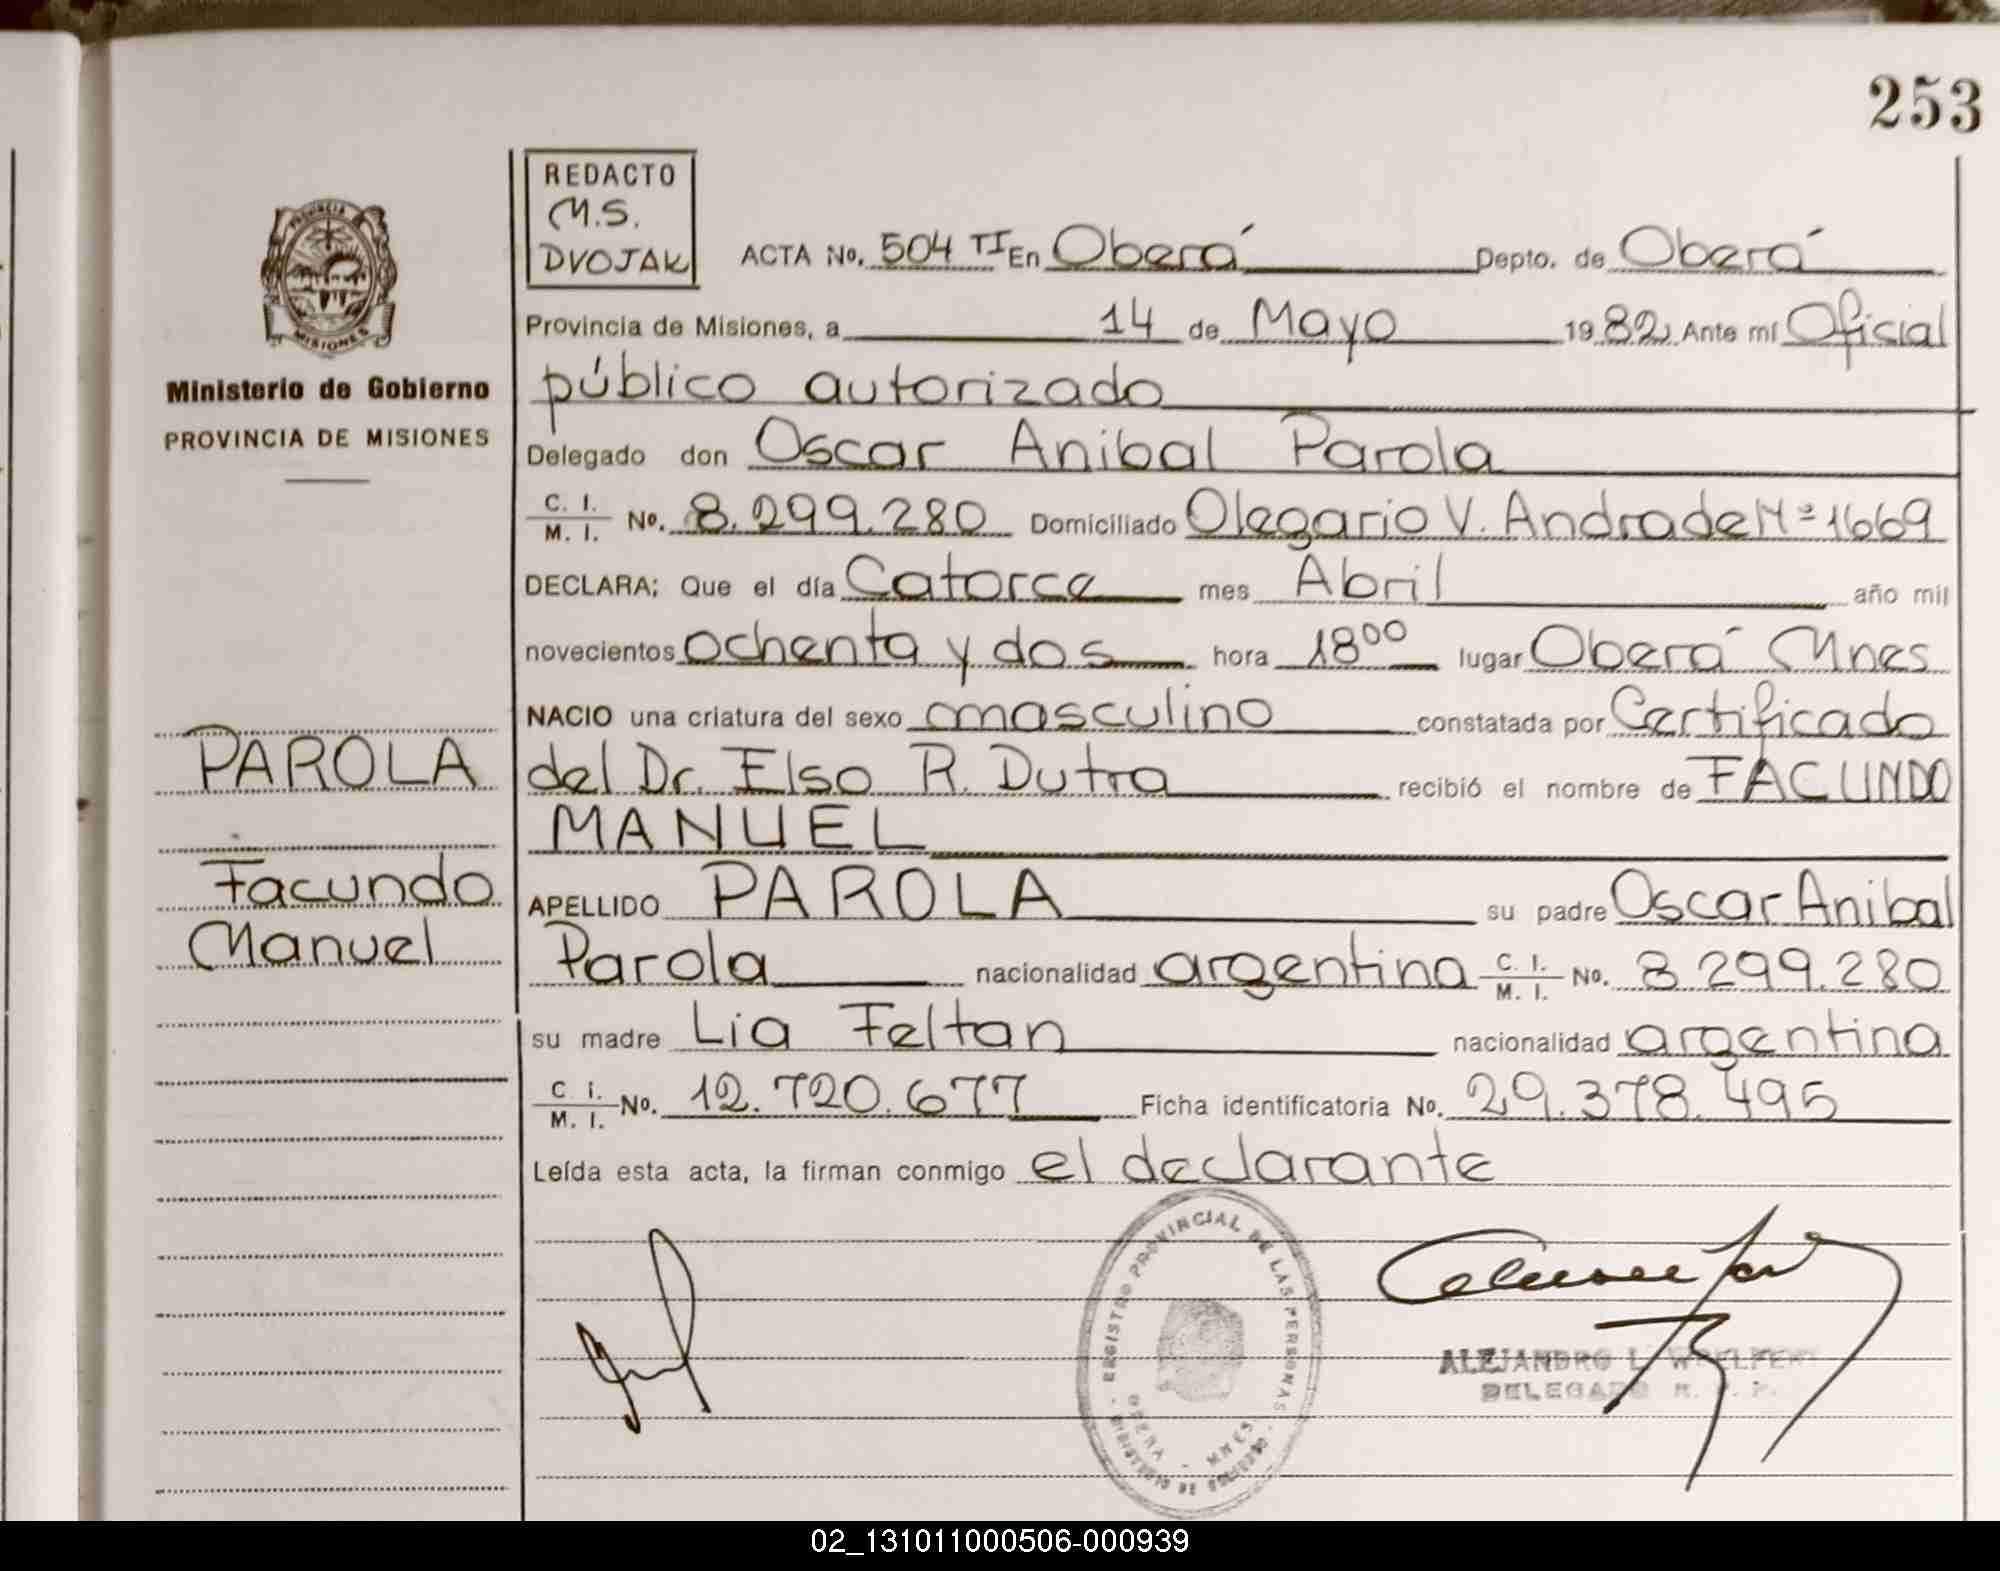 253
REDACTO
M.S.
DVOJAK
ACTA No. 504 TI En Oberá Depto. de Oberá
Provincia de Misiones, a 14 de Mayo 1982 Ante mí Oficial
público autorizado
Delegado don Oscar Anibal Parola
C. I. / M. I. No. 8.299.280 Domiciliado Olegario V. Andrade Nº 1669
DECLARA; Que el día Catorce mes Abril año mil
novecientos ochenta y dos hora 18⁰⁰ lugar Oberá Mnes
NACIO una criatura del sexo masculino constatada por Certificado
del Dr. Elso R. Dutra recibió el nombre de FACUNDO
MANUEL
APELLIDO PAROLA su padre Oscar Anibal
Parola nacionalidad argentina C. I. / M. I. No. 8.299.280
su madre Lia Feltan nacionalidad argentina
C. I. / M. I. No. 12.720.677 Ficha identificatoria No. 29.378.495
Leída esta acta, la firman conmigo el declarante
PROVINCIA DE
MISIONES
Ministerio de Gobierno
PROVINCIA DE MISIONES
PAROLA
Facundo
Manuel
REGISTRO PROVINCIAL DE LAS PERSONAS
OBERA - MNES
MINISTERIO DE GOBIERNO
ALEJANDRO L.
DELEGADO R. P. P.
02_131011000506-000939